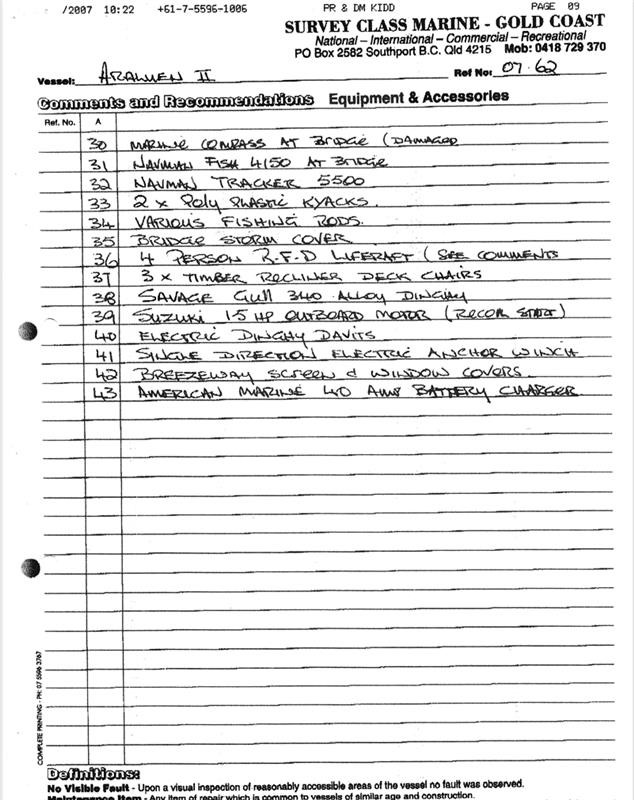 /2007 10:22 +61-7-5596-1006 PR & DM KIDD PAGE 09
SURVEY CLASS MARINE - GOLD COAST
National – International – Commercial – Recreational
PO Box 2582 Southport B.C. Qld 4215 Mob: 0418 729 370
Vessel: ARALUEN II Ref No: 07.62
Comments and Recommendations Equipment & Accessories
Ref. No. A
30 MARINE COMPASS AT BRIDGE (DAMAGED
31 NAVMAN FISH 4150 AT BRIDGE
32 NAVMAN TRACKER 5500
33 2 x POLY PLASTIC KYACKS.
34 VARIOUS FISHING RODS.
35 BRIDGE STORM COVER
36 4 PERSON R.F.D LIFERAFT (SEE COMMENTS
37 3 x TIMBER RECLINER DECK CHAIRS
38 SAVAGE GULL 340 ALLOY DINGHY
39 SUZUKI 15 HP OUTBOARD MOTOR (RECOIL START)
40 ELECTRIC DINGHY DAVITS
41 SINGLE DIRECTION ELECTRIC ANCHOR WINCH
42 BREEZEWAY SCREEN & WINDOW COVERS.
43 AMERICAN MARINE 40 AMP BATTERY CHARGER
COMPLETE PRINTING - PH: 07 5596 3767
Definitions:
No Visible Fault - Upon a visual inspection of reasonably accessible areas of the vessel no fault was observed.
Maintenance Item - Any item of repair which is common to vessels of similar age and construction.